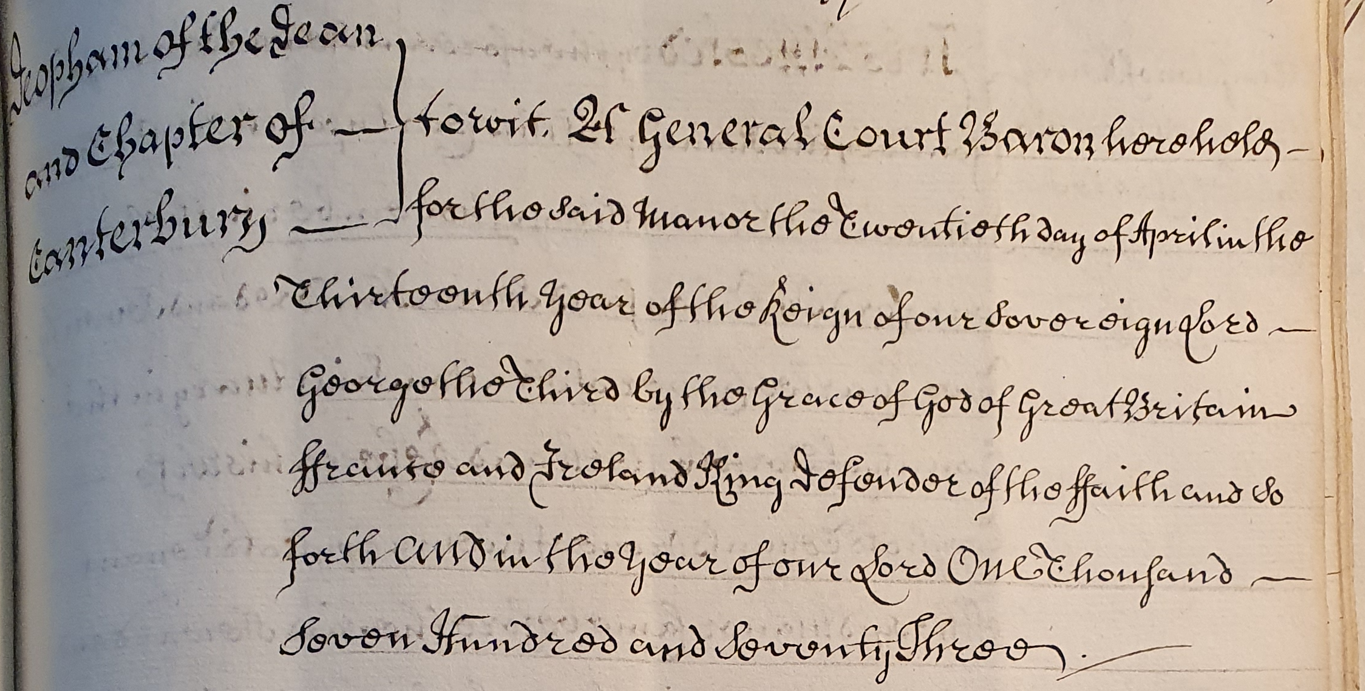 Deopham of the Dean
and Chapter of —
Canterbury —
towit. At General Court Baron here held —
for the said Manor the Twentieth day of April in the
Thirteenth Year of the Reign of our Sovereign Lord —
George the Third by the Grace of God of Great Britain
ffrance and Ireland King Defender of the ffaith and so
forth And in the Year of our Lord One Thousand —
Seven Hundred and Seventy Three.